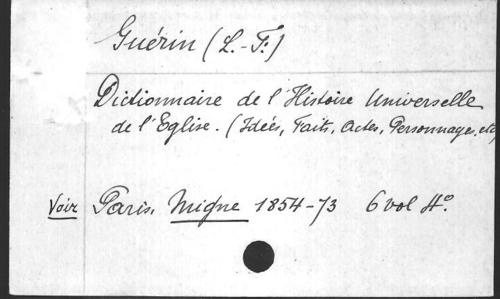 Guérin (L.-F.)
Dictionnaire de l'Histoire Universelle
de l'Eglise. (Idées, Faits, Actes, Personnages, etc)
Voir Paris, Migne 1854-73 6 vol 4º.